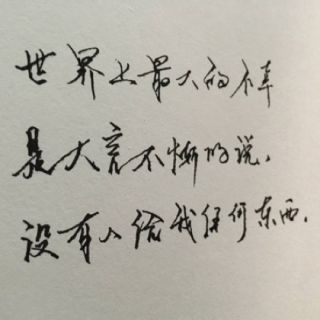 世界上最大的不幸
是大言不惭的说，
没有人给我任何东西.